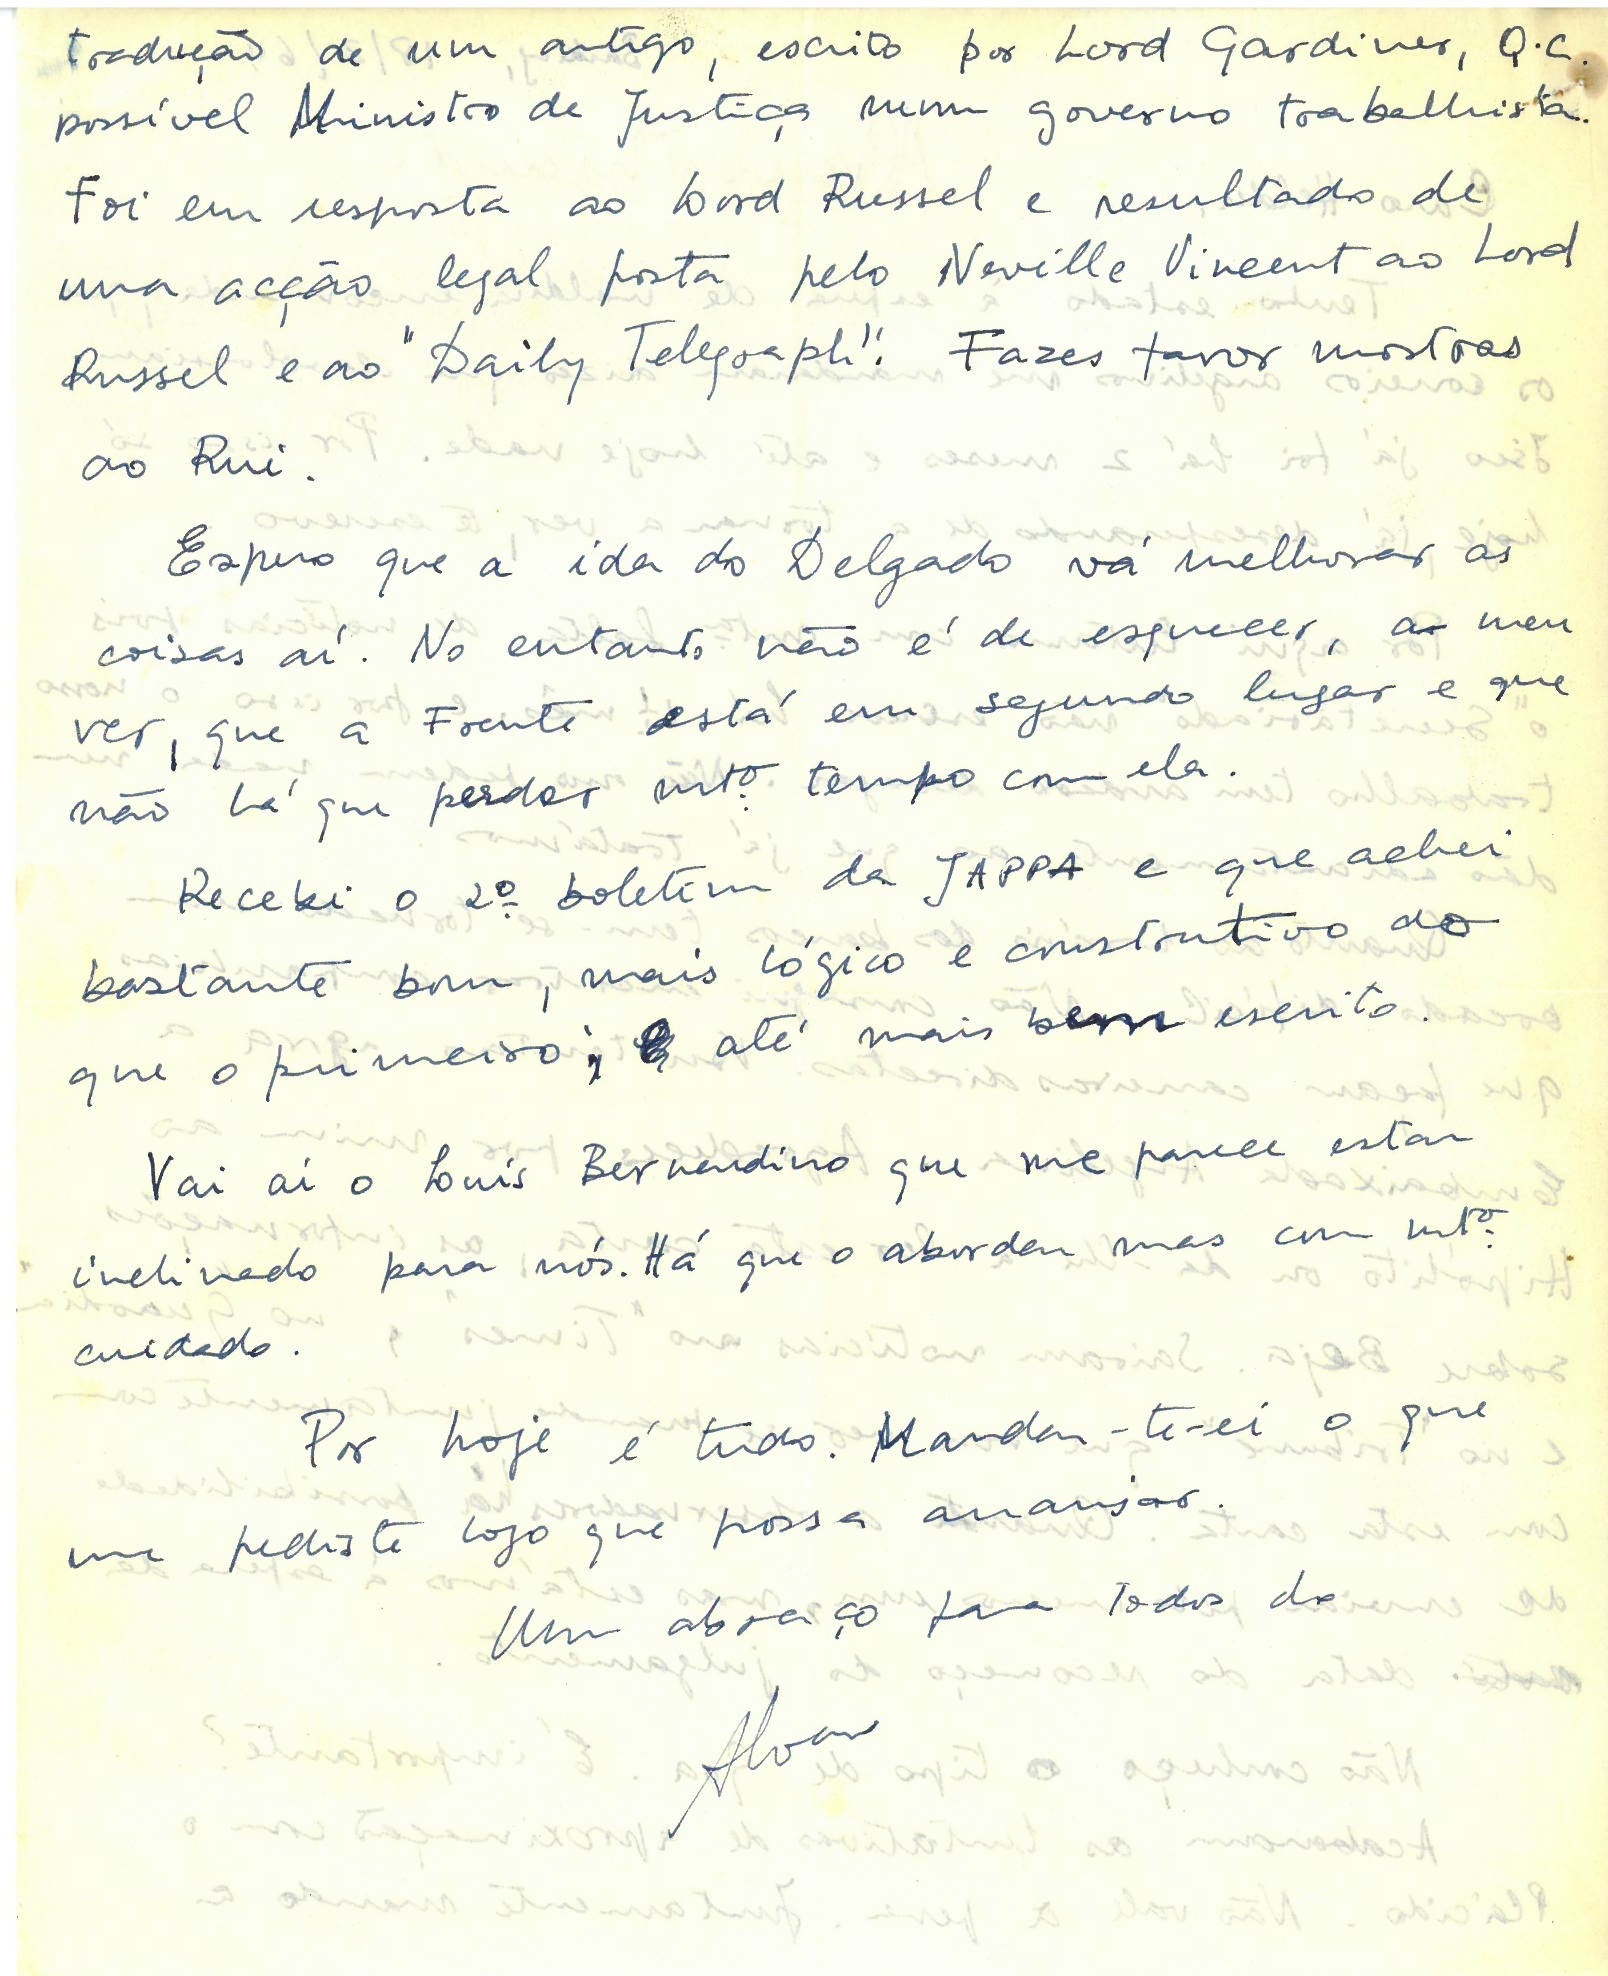 tradução de um artigo, escrito por Lord Gardiner, Q.C.
possível Ministro de Justiça num governo trabalhista.
Foi em resposta ao Lord Russel e resultado de
uma acção legal posta pelo Neville Vincent ao Lord
Russel e ao "Daily Telegraph". Fazes favor mostras
ao Rui.
Espero que a ida do Delgado vá melhorar as
coisas aí. No entanto não é de esquecer, a meu
ver, que a Frente está em segundo lugar e que
não há que perder mtº. tempo com ela.
Recebi o 2º boletim da JAPPA e que achei
bastante bom, mais lógico e construtivo do
que o primeiro; até mais bem escrito.
Vai aí o Louis Bernardino que me parece estar
inclinado para nós. Há que o abordar mas com mtº.
cuidado.
Por hoje é tudo. Mandar-te-ei o que
me pediste logo que possa arranjar.
Um abraço para todos do
Alvar